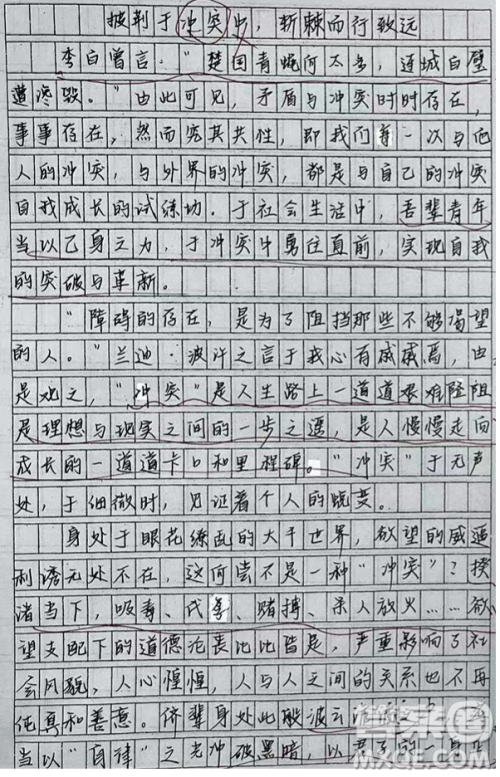 披荆于冲突中，斩棘而行致远
李白曾言："楚国青蝇何太多，连城白璧
遭谗毁。"由此可见，矛盾与冲突时时存在，
事事存在，然而究其共性，即我们每一次与他
人的冲突，与外界的冲突，都是与自己的冲突
自我成长的试练场。于社会生活中，吾辈青年
当以己身之力，于冲突中勇往直前，实现自我
的突破与革新。
"障碍的存在，是为了阻挡那些不够渴望
的人。"兰迪·波许之言于我心有戚戚焉，由
是观之，"冲突"是人生路上一道道艰难险阻
是理想与现实之间的一步之遥，是人慢慢走向
成长的一道道卡口和里程碑。"冲突"于无声
处，于细微时，见证着个人的蜕变。
身处于眼花缭乱的大千世界，欲望的威逼
利诱无处不在，这何尝不是一种"冲突"？揆
诸当下，吸毒、代孕、赌博、杀人放火……欲
望支配下的道德沦丧比比皆是，严重影响了社
会风貌，人心惶惶，人与人之间的关系也不再
纯真和善意。侪辈身处此般波云
当以"自律"之光冲破黑暗，以君子的一身